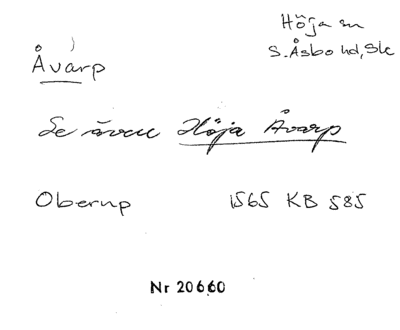 Höja sn
S. Åsbo hd, Sk
Åvarp
Se även Höja Åvarp
Oberup 1565 KB 585
Nr 20660